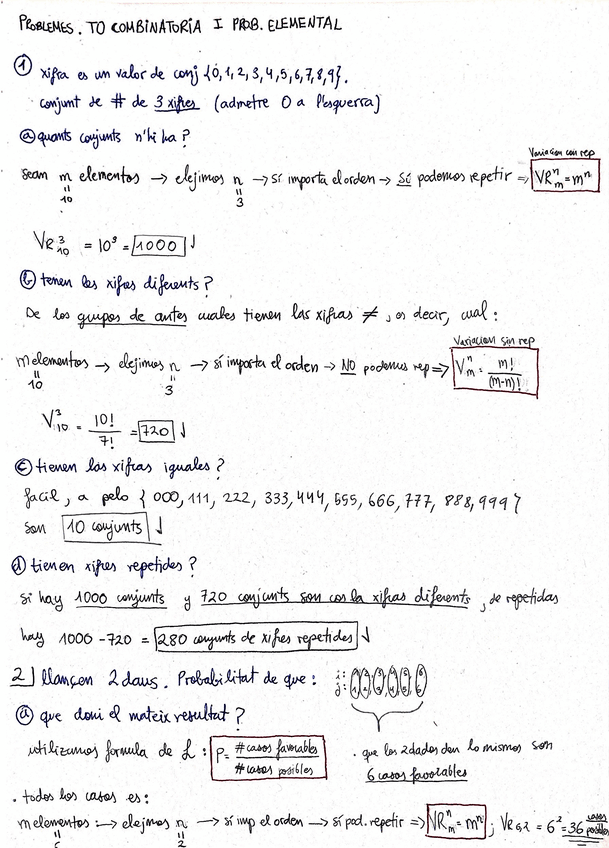 PROBLEMES. T0 COMBINATORIA I PROB. ELEMENTAL
① xifra es un valor de conj {0,1,2,3,4,5,6,7,8,9}.
conjunt de # de 3 xifres (admetre 0 a l'esquerra)
ⓐ quants conjunts n'hi ha?
Variacion con rep
Sean m elementos → elejimos n → sí importa el orden → SÍ podemos repetir ⇒ VR_m^n = m^n
10 3
VR_10^3 = 10³ = 1000
ⓑ tenen les xifres diferents?
De los grupos de antes cuales tienen las xifras ≠, es decir, cual:
Variacion sin rep
m elementos → elejimos n → sí importa el orden → NO podemos rep ⇒ V_m^n = m!/(m-n)!
10 3
V_10^3 = 10!/7! = 720
ⓒ tienen las xifras iguales?
facil, a pelo {000, 111, 222, 333, 444, 555, 666, 777, 888, 999}
son 10 conjunts
ⓓ tienen xifres repetides?
si hay 1000 conjunts y 720 conjunts son con la xifras diferents, de repetidas
hay 1000-720 = 280 conjunts de xifres repetides
2 llançen 2 daus. Probabilitat de que: i: 1 2 3 4 5 6
j: 1 2 3 4 5 6
ⓐ que doni el mateix resultat?
utilizamos formula de L: P = # casos favorables / # casos posibles
. que los 2 dados den lo mismos son
6 casos favorables
. todos los casos es:
m elementos → elejmos n → sí imp el orden → sí pod. repetir ⇒ VR_m^n = m^n; VR6,2 = 6² = 36 casos posibles
6 2